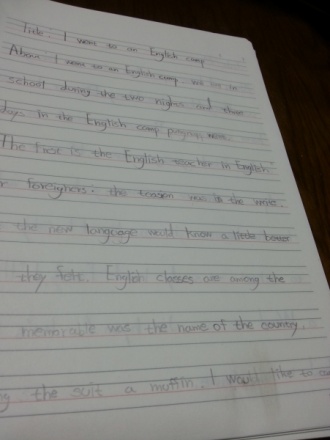 Title : I went to an English camp
I went to an English camp. we in
school during the two nights and three
days in the English camp program were.
The first is the English teacher in English
foreigners. the was in the
the new language would know a little better
they felt. English classes are among the
memorable was the name of the country.
the suit a muffin. I would like to